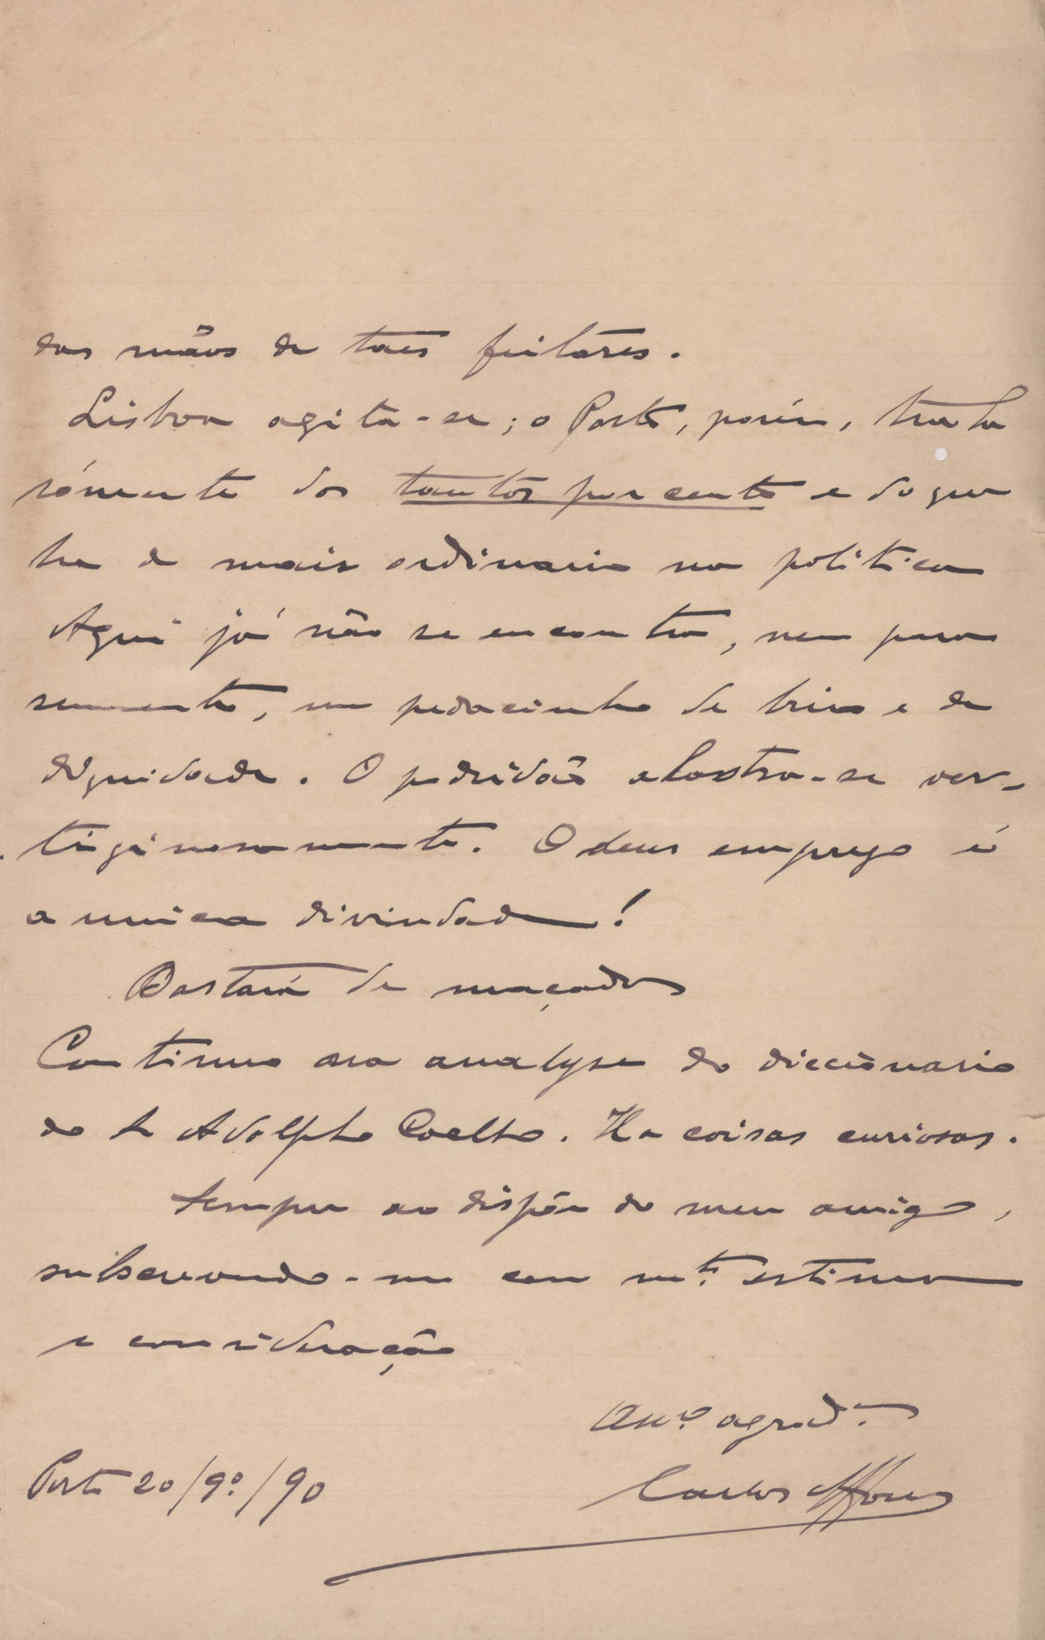 das mãos de taes feitores.
Lisboa agita-se; o Porto, porém, trata
sómente dos tantos por cento e do que
ha de mais ordinario na politica
Aqui já não se encontra, nem para
semente, um pedacinho de brio e de
dignidade. A podridão alastra-se ver-
tiginosamente. O deus emprego é
a unica divindade!
Bastará de maçada
Continuo ora analyse do diccionario
do Sr Adolpho Coelho. Ha coisas curiosas.
Sempre ao dispôr do meu amigo,
subscrevendo-me com mta estima
e consideração
Amo agrad.
Porto 20/9º/90
Carlos Affonso